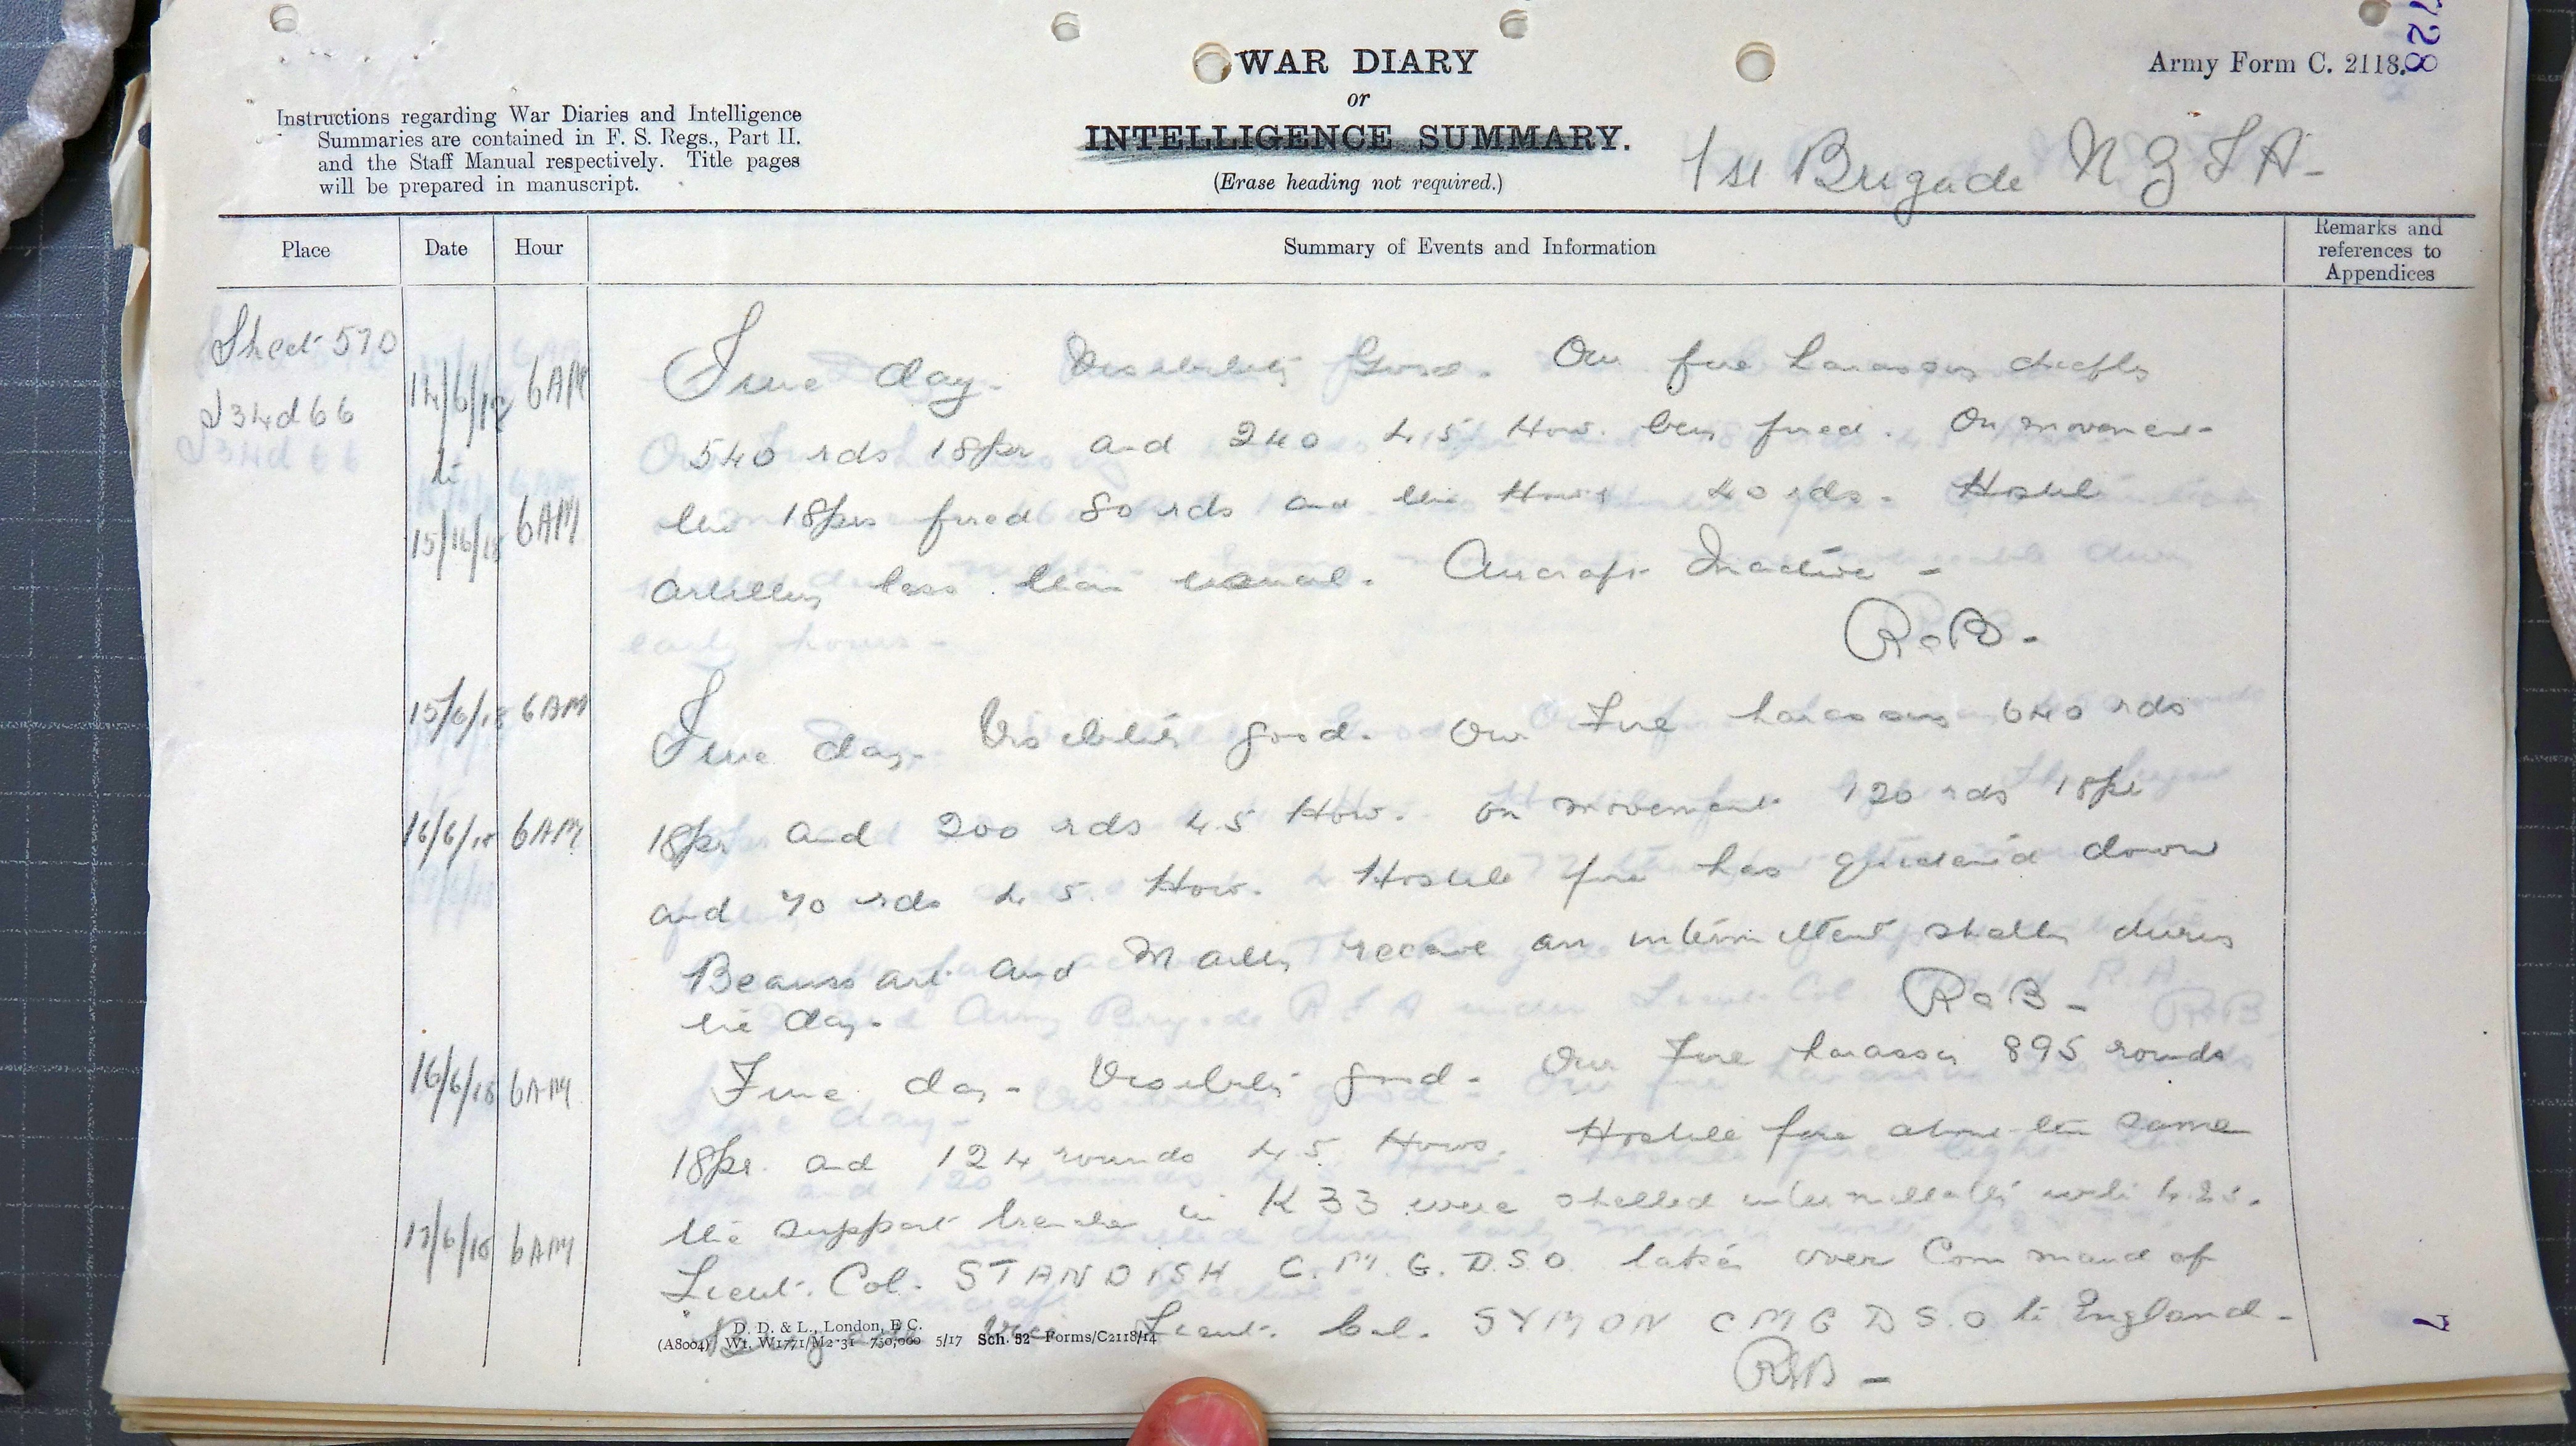 728
WAR DIARY
or
INTELLIGENCE SUMMARY.
(Erase heading not required.)
Army Form C. 2118.
Instructions regarding War Diaries and Intelligence
Summaries are contained in F. S. Regs., Part II.
and the Staff Manual respectively. Title pages
will be prepared in manuscript.
1st Brigade N Z F A -
Place
Date
Hour
Summary of Events and Information
Remarks and
references to
Appendices
Sheet 57D
J34d66
14/6/18 6AM
to
15/6/18 6AM
Fine day. Visibility Good. Our fire harassing chiefly
540 rds 18pr and 240 4.5 How. being fired. On movement
the 18prs fired 80 rds and the Hows 40 rds. Hostile
artillery less than usual. Aircraft Inactive -
RoB -
15/6/18 6AM
16/6/18 6AM
Fine day. Visibility good. Our Fire harassing 640 rds
18pr and 200 rds 4.5 How. on movement 120 rds 18pr
and 70 rds 4.5. How. Hostile fire has quietened down
Beaussart and Mailly receive an intermittent shelling during
the day.
RoB -
16/6/18 6AM
17/6/18 6AM
Fine day - Visibility good - Our Fire harassing 895 rounds
18pr. and 124 rounds 4.5 Hows. Hostile fire about the same
the support trenches in K33 were shelled intermittently with 4.2s.
Lieut. Col. STANDISH C.M.G. D.S.O. takes over Command of
Brigade Vice Lieut. Col. SYMON CMG D S.O to England -
RoB -
D. D. & L., London, E.C.
(A8004) Wt. W1771/M2 31 750,000 5/17 Sch. 52 Forms/C2118/14
7